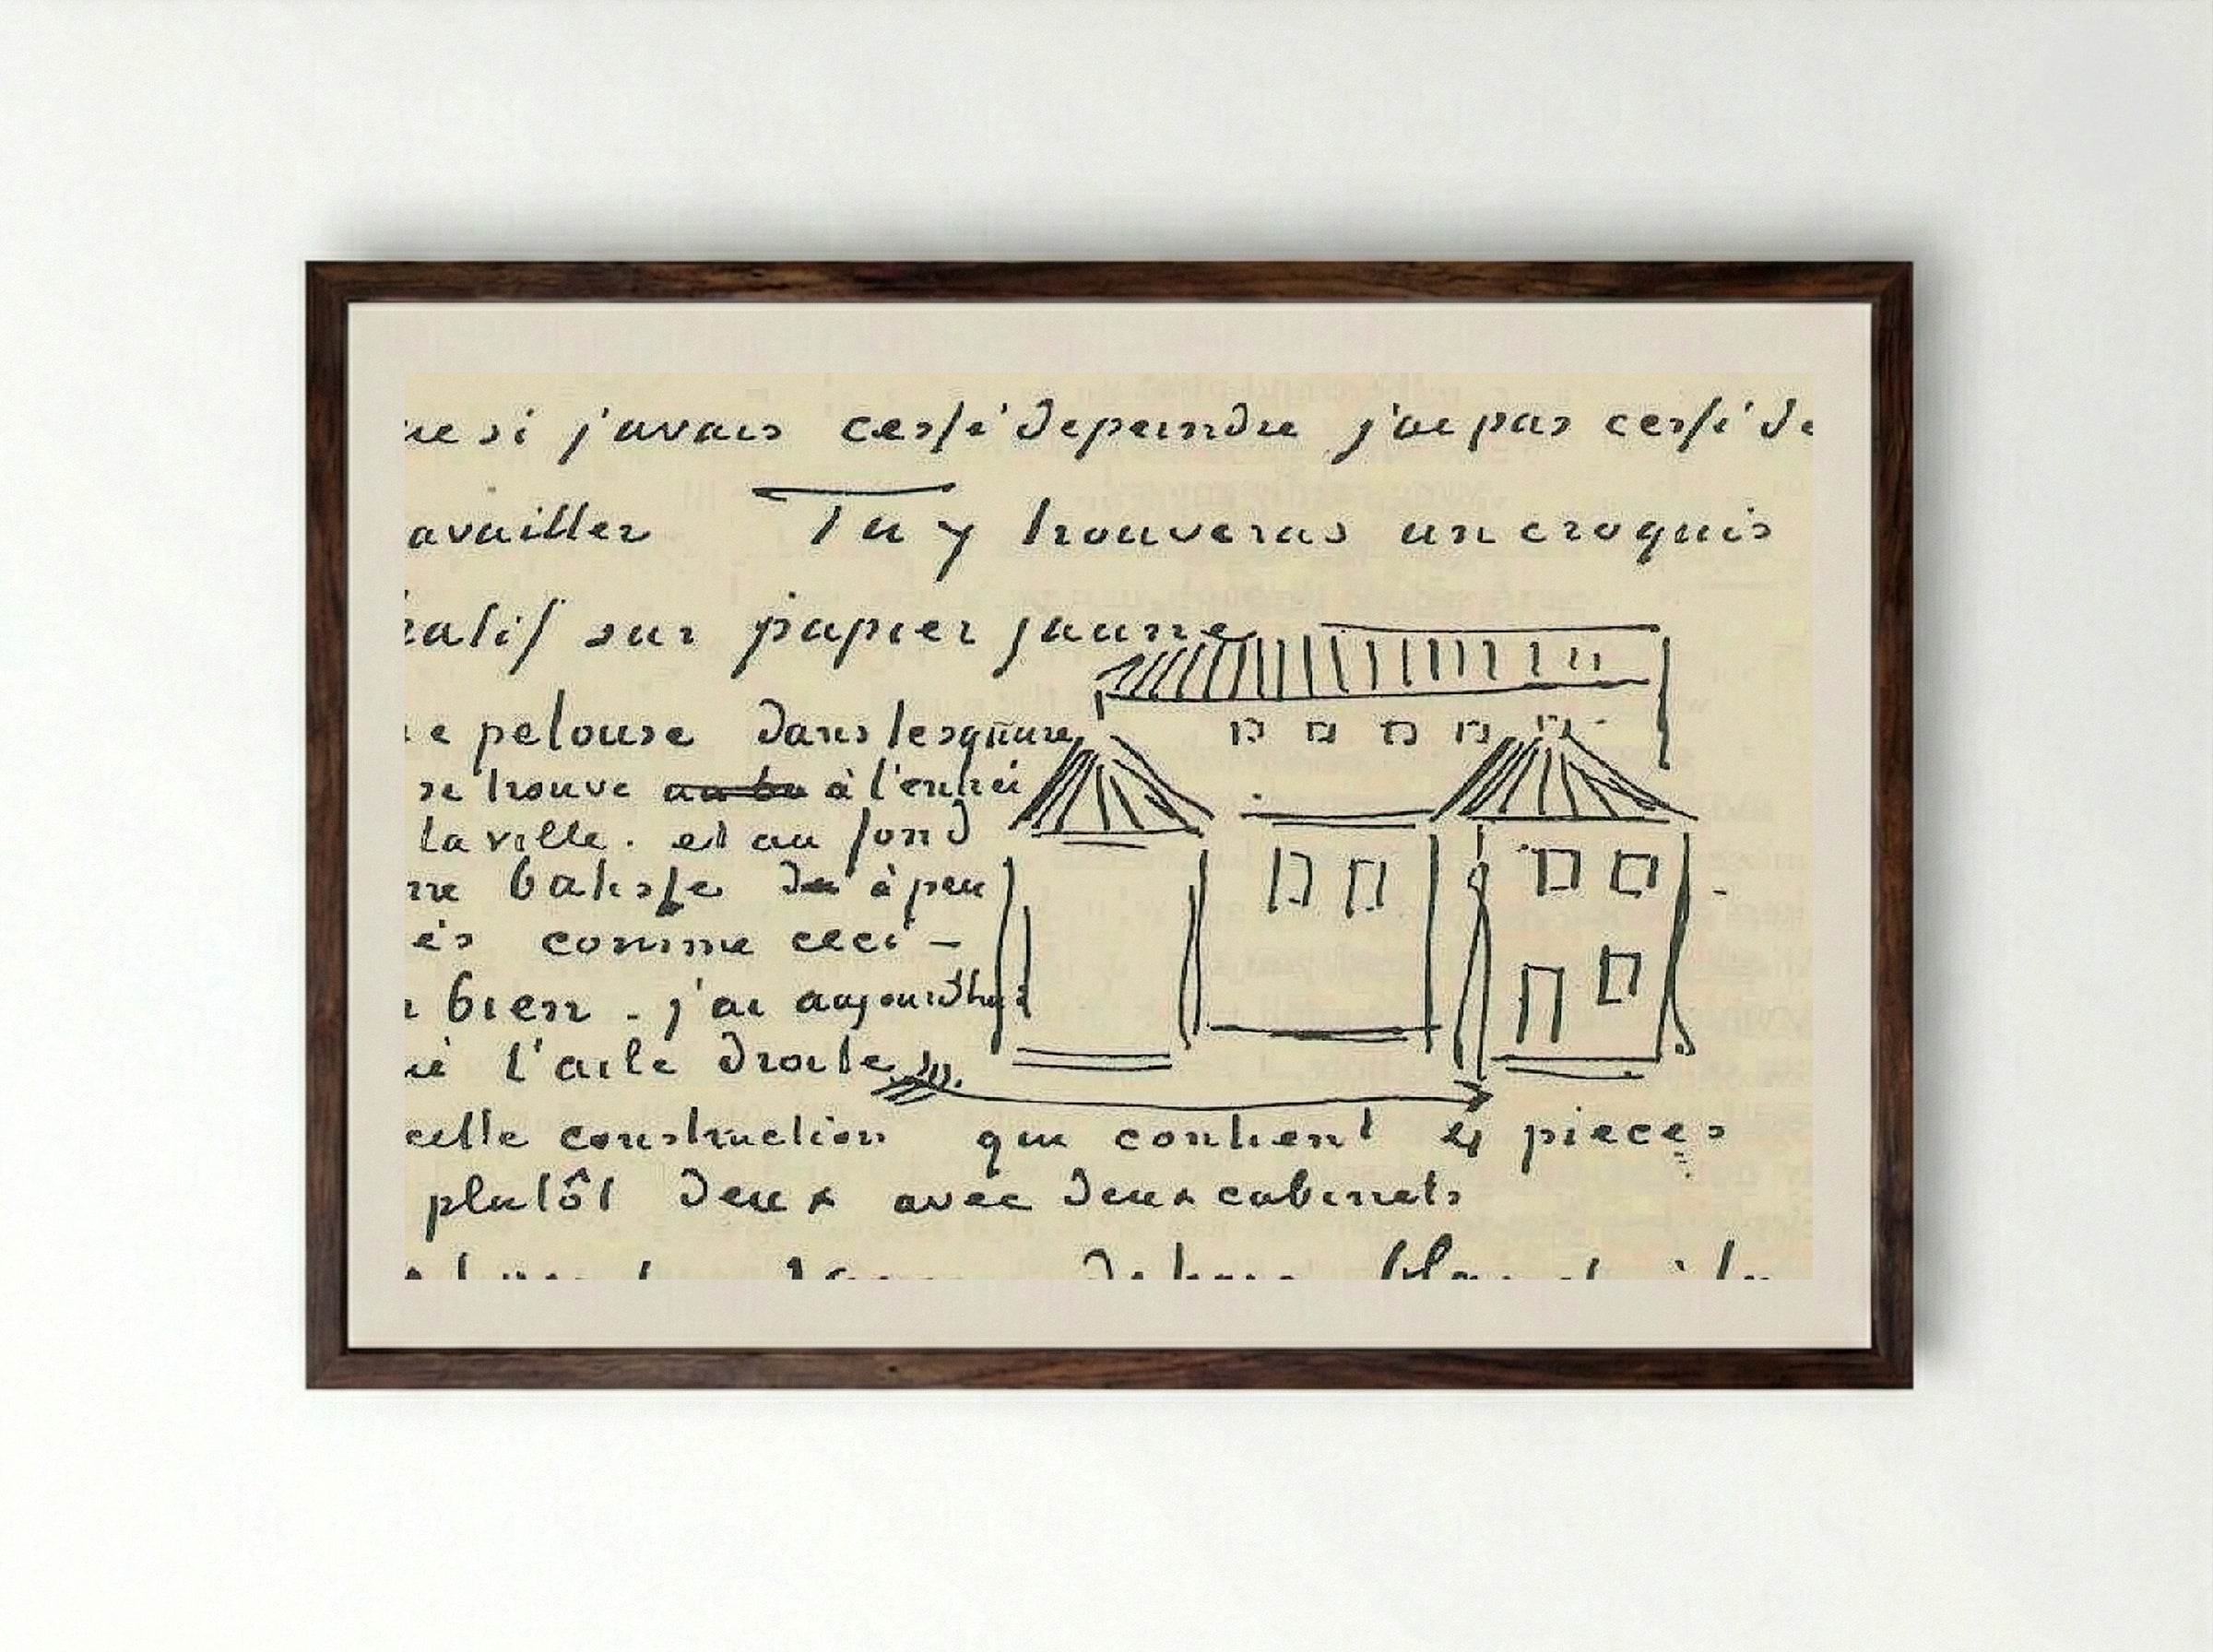 ue si j'avais cessé de peindre j'ai pas cessé de
availler Tu y trouveras un croquis
hatif sur papier jaune
e pelouse dans le square
se trouve à l'entrée
la ville. et au fond
ne batisse à peu
ès comme ceci –
bien. j'ai aujourd'hui
ué l'aile droite
cette construction qui contient 4 pieces
plutôt deux avec deux cabinets